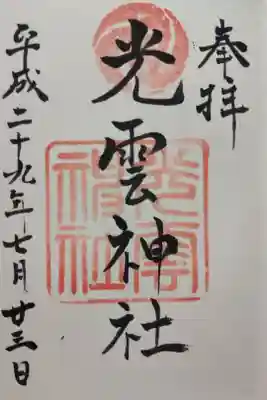 奉拝
光雲神社
平成二十九年七月廿三日